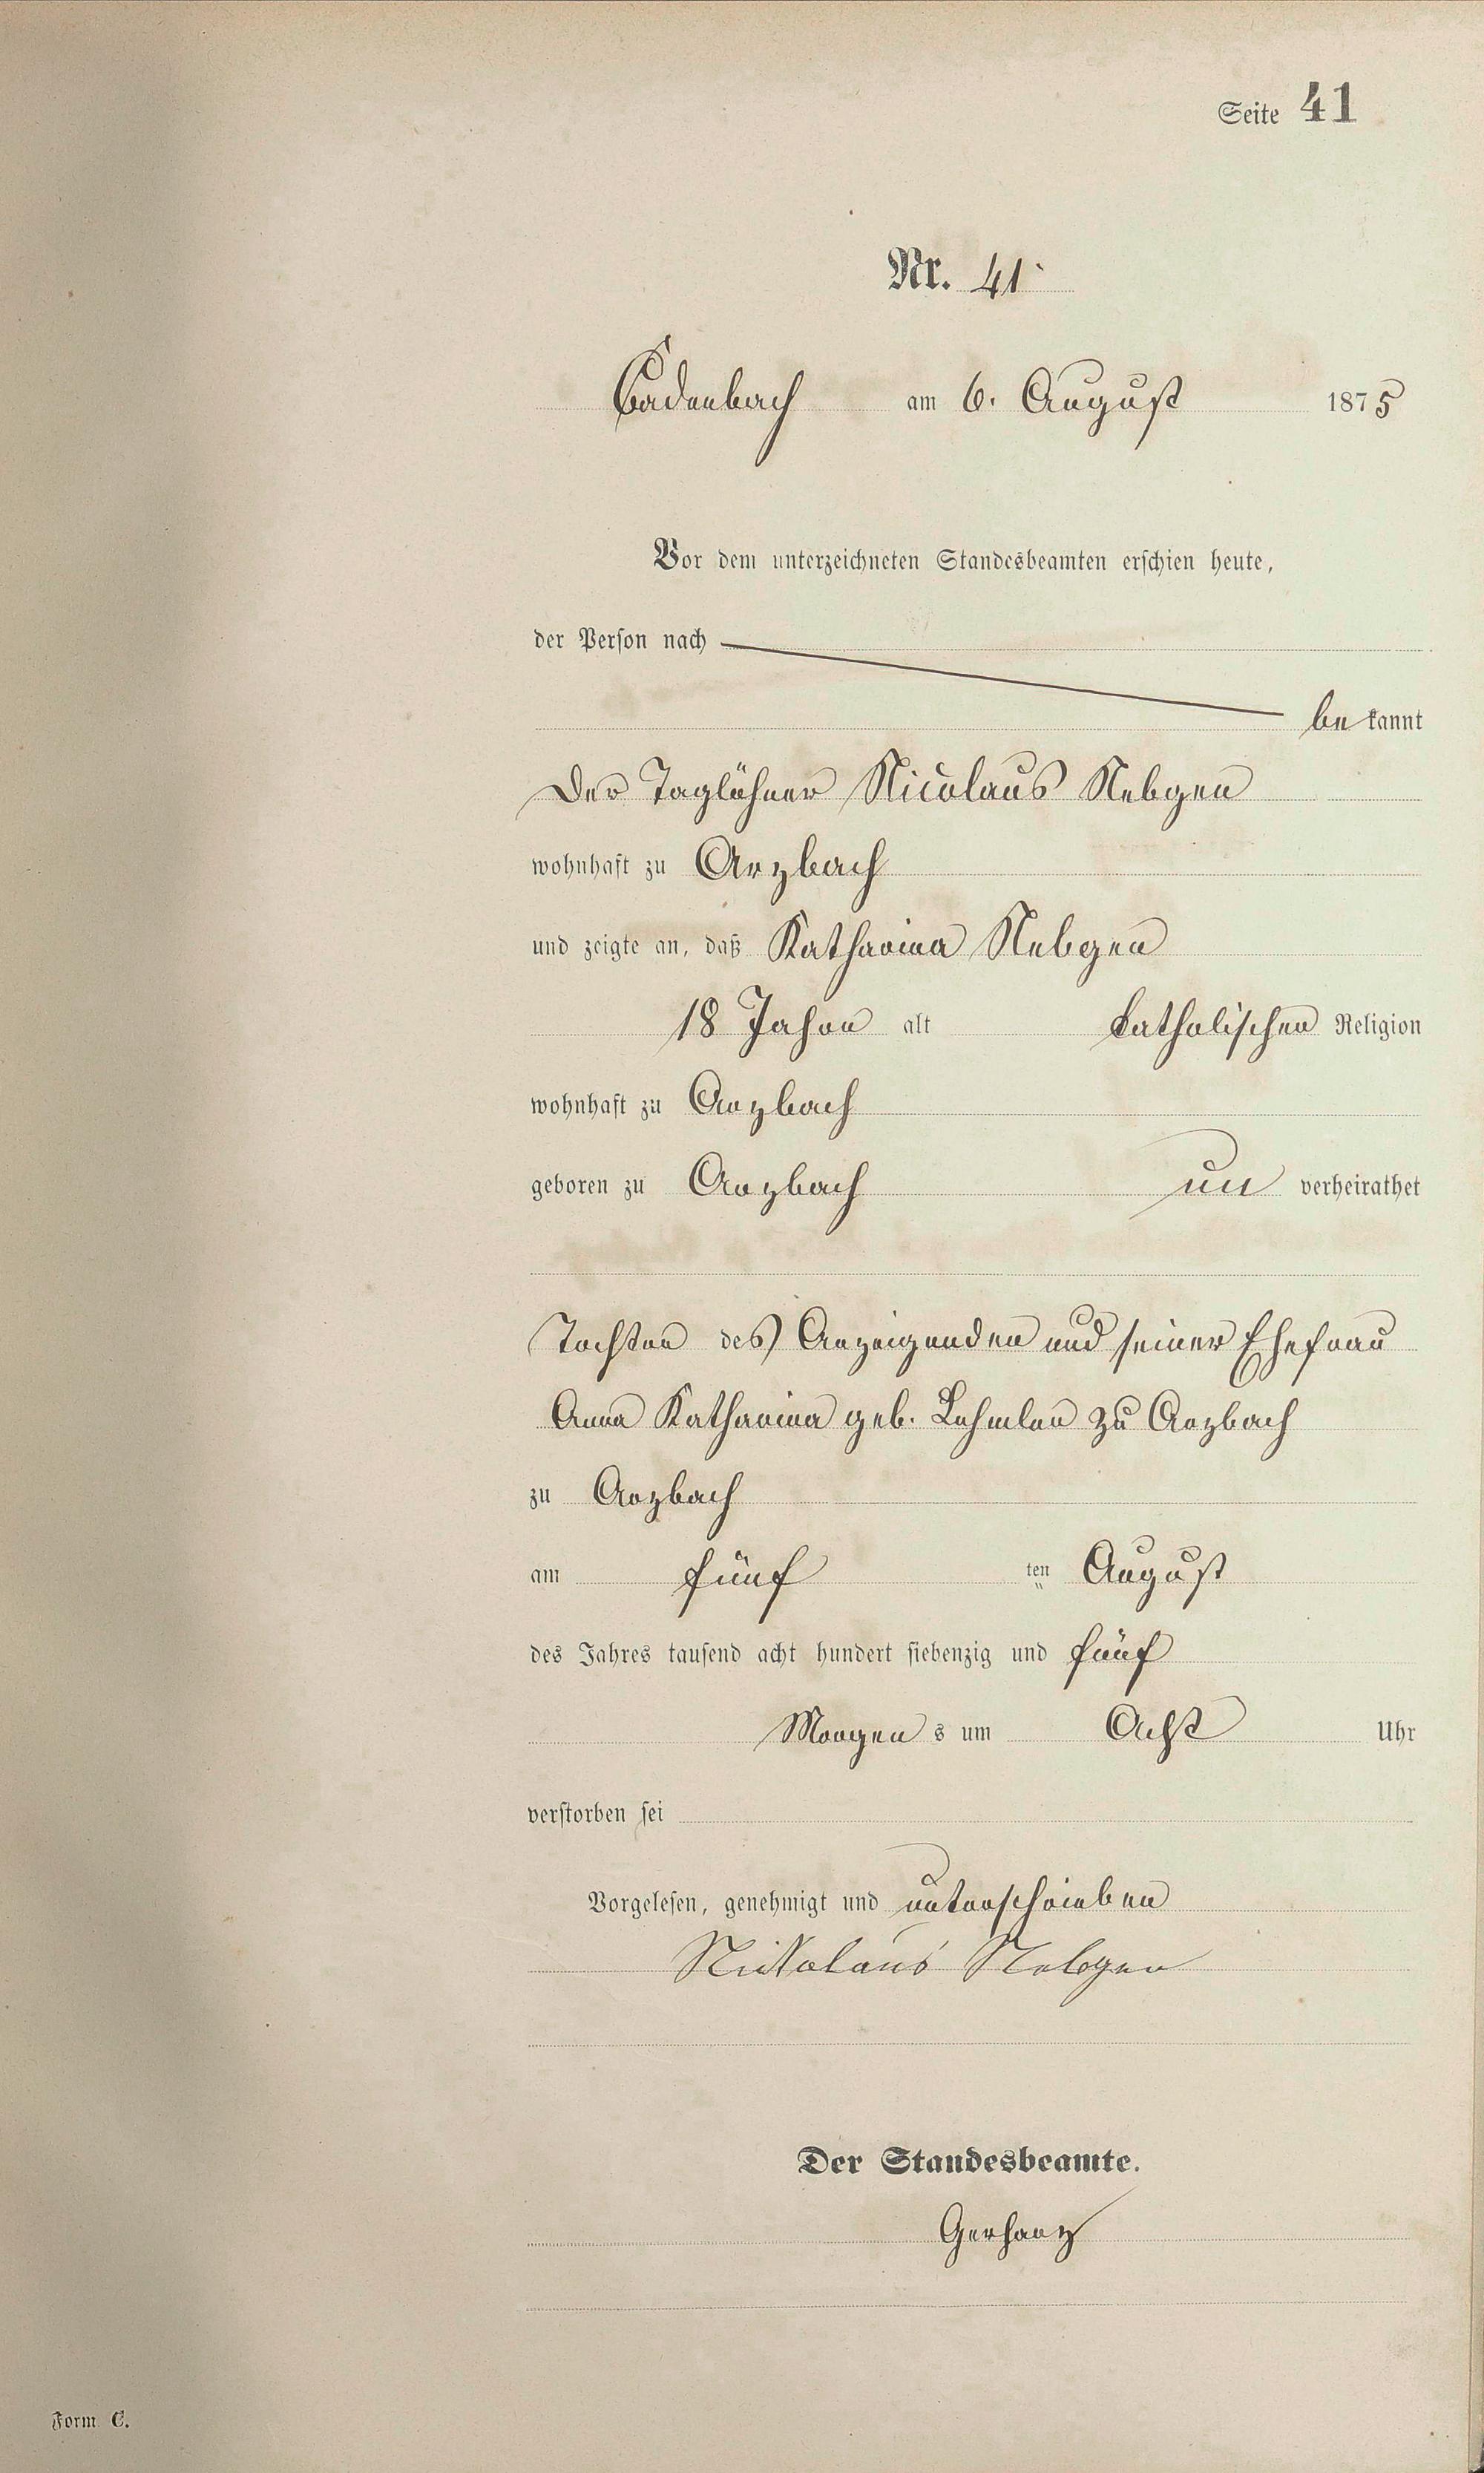 Seite 41
Nr. 41
Cadenbach am 6. August 1875
Vor dem unterzeichneten Standesbeamten erschien heute,
der Person nach
bekannt
Der Taglöhner Nicolaus Nebgen
wohnhaft zu Arzbach
und zeigte an, daß Katharina Nebgen
18 Jahre alt katholischer Religion
wohnhaft zu Arzbach
geboren zu Arzbach un verheirathet
Tochter des Anzeigenden und seiner Ehefrau
Anna Katharina geb. Lehmler zu Arzbach
zu Arzbach
am fünf ten August
des Jahres tausend acht hundert siebenzig und fünf
Morgen s um Acht Uhr
verstorben sei
Vorgelesen, genehmigt und unterschrieben
Nikolaus Nebgen
Der Standesbeamte.
Gerharz
Form C.